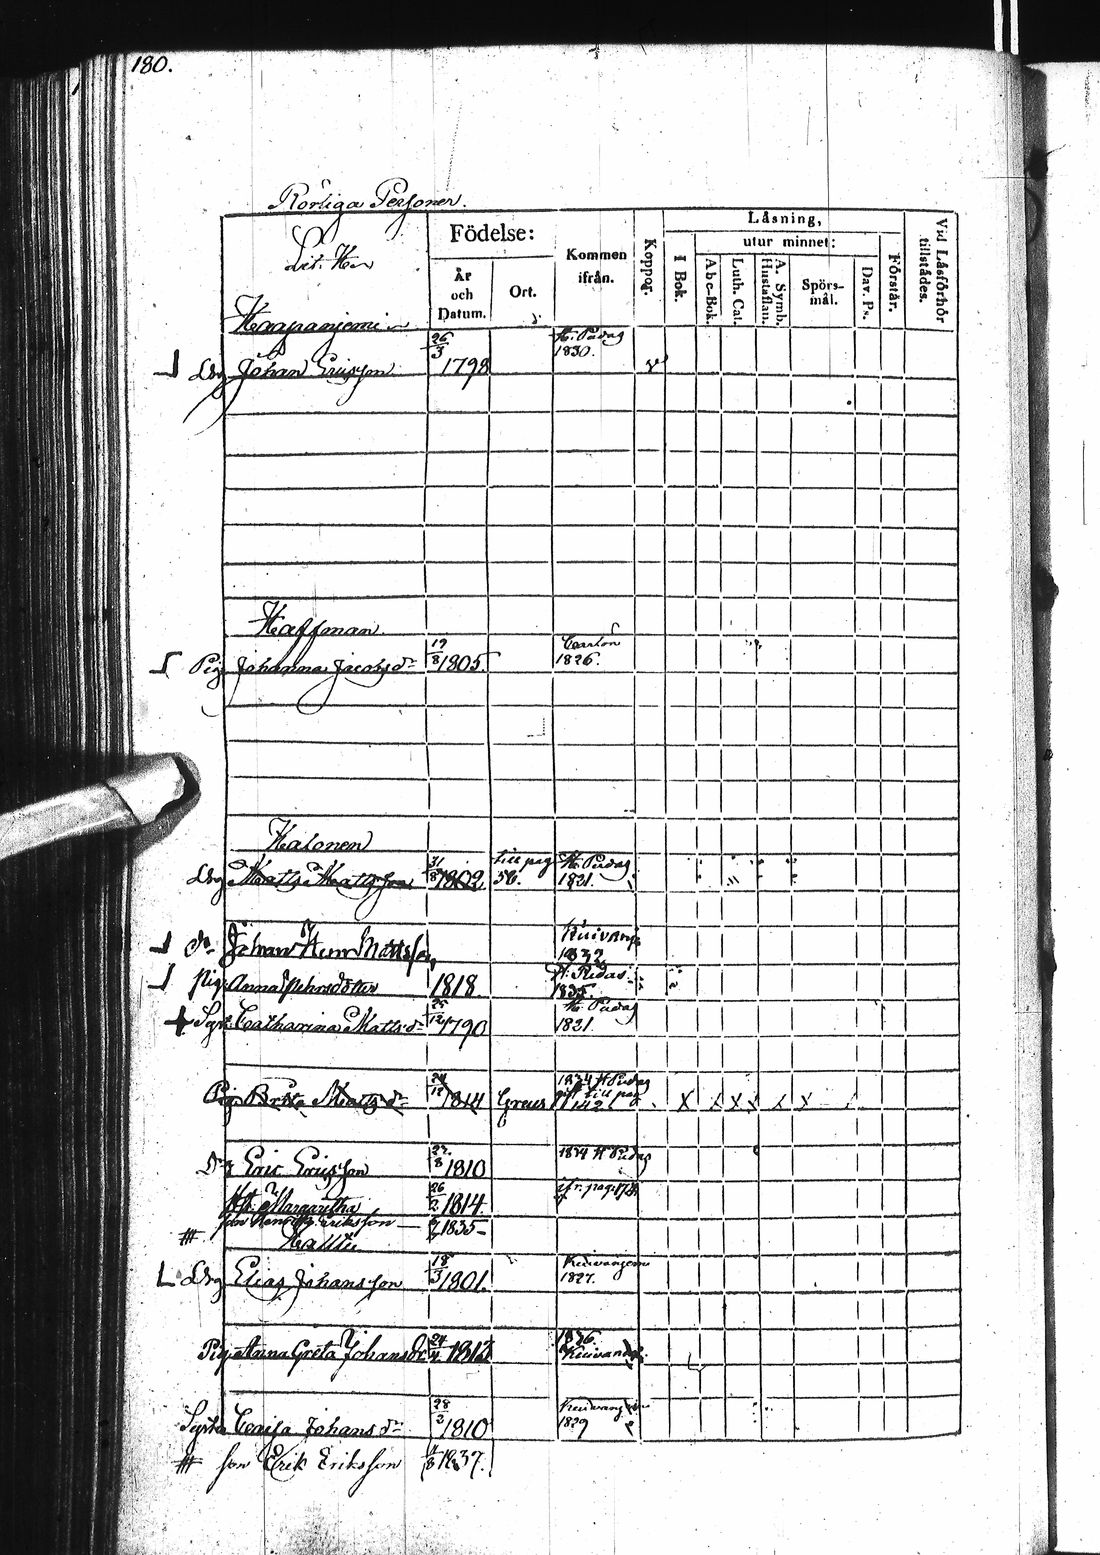 180.
Rörliga Personer.
Lit. H.
Födelse:
År och Datum.
Ort.
Kommen ifrån.
Koppor.
Läsning,
I Bok.
utur minnet:
Abc-Bok.
Luth. Cat.
A. Symb. Hustaflan.
Spörs-mål.
Dav. Ps.
Förstår.
Vid Läsförhör tillstädes.
Haapaniemi
Drg Johan Ericsson 26/3 1798 H. Pudas 1830.
Haffman
Pig. Johanna Jacobsdr 19/8 1805 1826.
Halonen
Drg Matts Mattsson 31/8 1802 till pag 56. H. Pudas 1821.
Dr Johan Henr Mattsson 1832
Pig. Anna Pehrsdotter 1818. H. Pudas 1835
Syst. Catharina Mattsdr 25/12 1790 H. Pudas 1821.
Pig. Brita Mattsdr 24/12 1814 1834 H Pudas till pag 142
Drg Eric Ericsson 27/8 1810 1834 H Pudas
H. Margaretha 26/2 1814. ifr. pag.
son Henrik Eriksson 1835
Hattu
Drg Elias Johansson 18/3 1801. Kuivaniemi 1827.
Pig. Anna Greta Johansdr 24/4 1813 1836 Kuivaniemi
Syster Caisa Johansdr 28/2 1810 1829
son Erik Eriksson 1837.